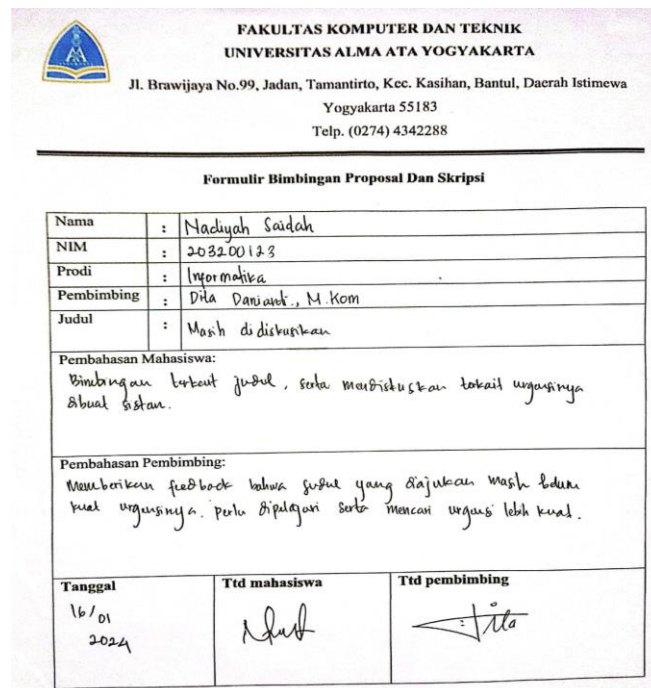 FAKULTAS KOMPUTER DAN TEKNIK
UNIVERSITAS ALMA ATA YOGYAKARTA
Jl. Brawijaya No.99, Jadan, Tamantirto, Kec. Kasihan, Bantul, Daerah Istimewa
Yogyakarta 55183
Telp. (0274) 4342288
Formulir Bimbingan Proposal Dan Skripsi
Nama : Nadiyah Saidah
NIM : 203200123
Prodi : Informatika
Pembimbing : Dita Danianti, M.Kom
Judul : Masih didiskusikan
Pembahasan Mahasiswa:
Bimbingan terkait judul, serta mendiskusikan terkait urgensinya
dibuat sistem.
Pembahasan Pembimbing:
Memberikan feedback bahwa judul yang diajukan masih belum
kuat urgensinya. perlu dipelajari serta mencari urgensi lebih kuat.
Tanggal Ttd mahasiswa Ttd pembimbing
16/01
2024
Dita